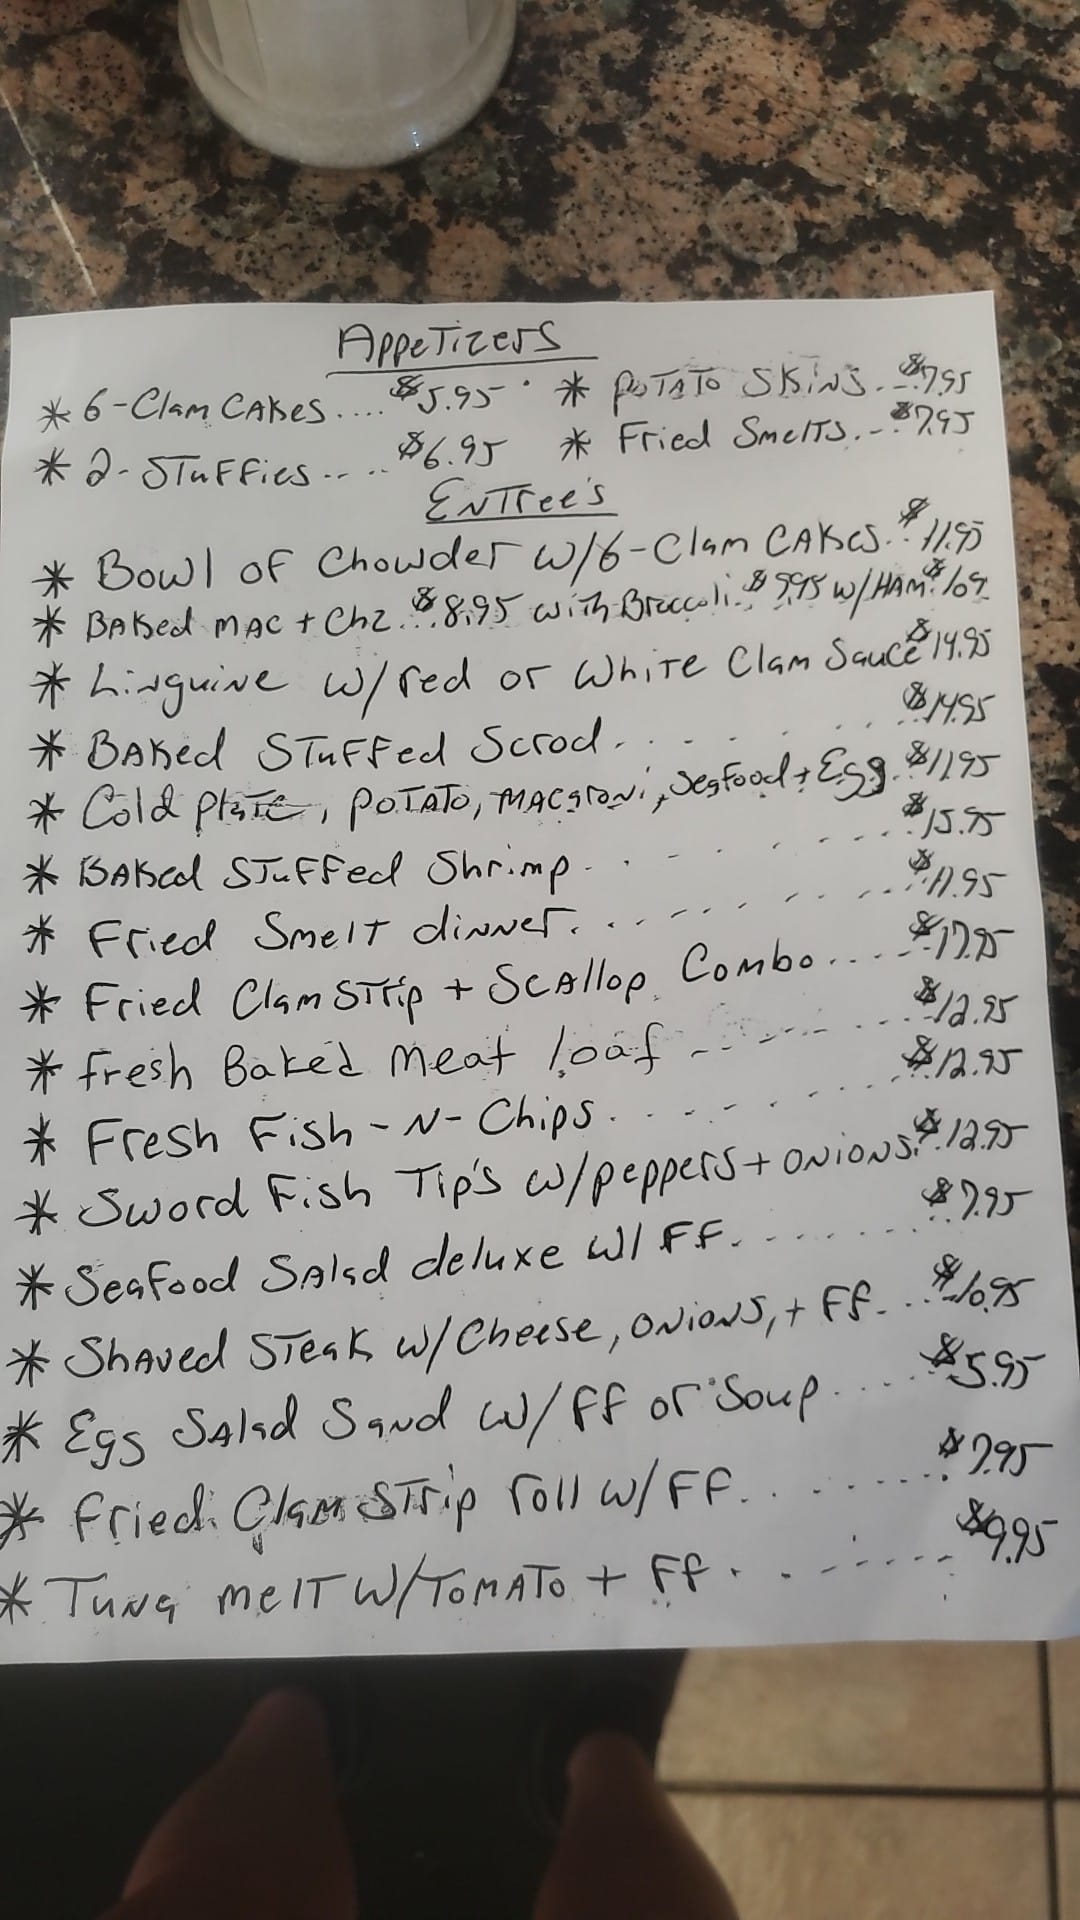 Appetizers
* 6-Clam Cakes.... $5.95 * Potato Skins... $7.95
* 2-Stuffies..... $6.95 * Fried Smelts... $7.95
Entree's
* Bowl of Chowder w/6-Clam Cakes.. $11.95
* Baked Mac + Chz... $8.95 with Broccoli. $9.95 w/HAM. $
* Linguine w/red or White Clam Sauce $14.95
* Baked Stuffed Scrod....... $14.95
* Cold Plate, Potato, Macaroni, Seafood + Egg. $11.95
* Baked Stuffed Shrimp........ $15.95
* Fried Smelt dinner........ $11.95
* Fried Clam Strip + Scallop Combo..... $17.95
* Fresh Baked Meat loaf ........ $12.95
* Fresh Fish-N-Chips........ $12.95
* Sword Fish Tip's w/peppers + onions. $12.95
* Seafood Salad deluxe w/ FF....... $7.95
* Shaved Steak w/Cheese, onions, + FF.... $10.95
* Egg Salad Sand w/FF or Soup..... $5.95
* Fried Clam Strip roll w/FF....... $7.95
* Tuna melt w/Tomato + FF....... $9.95